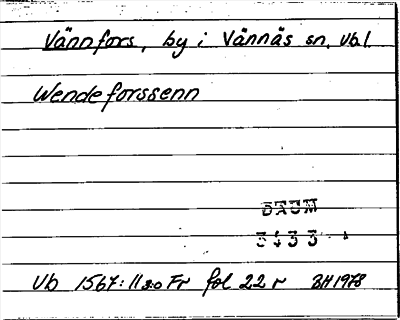 Vännfors, by i Vännäs sn, Vbl.
Wendeforssenn
DAUM
3433
Vb 1567:11 s:o Fr fol 22 r BH 1978